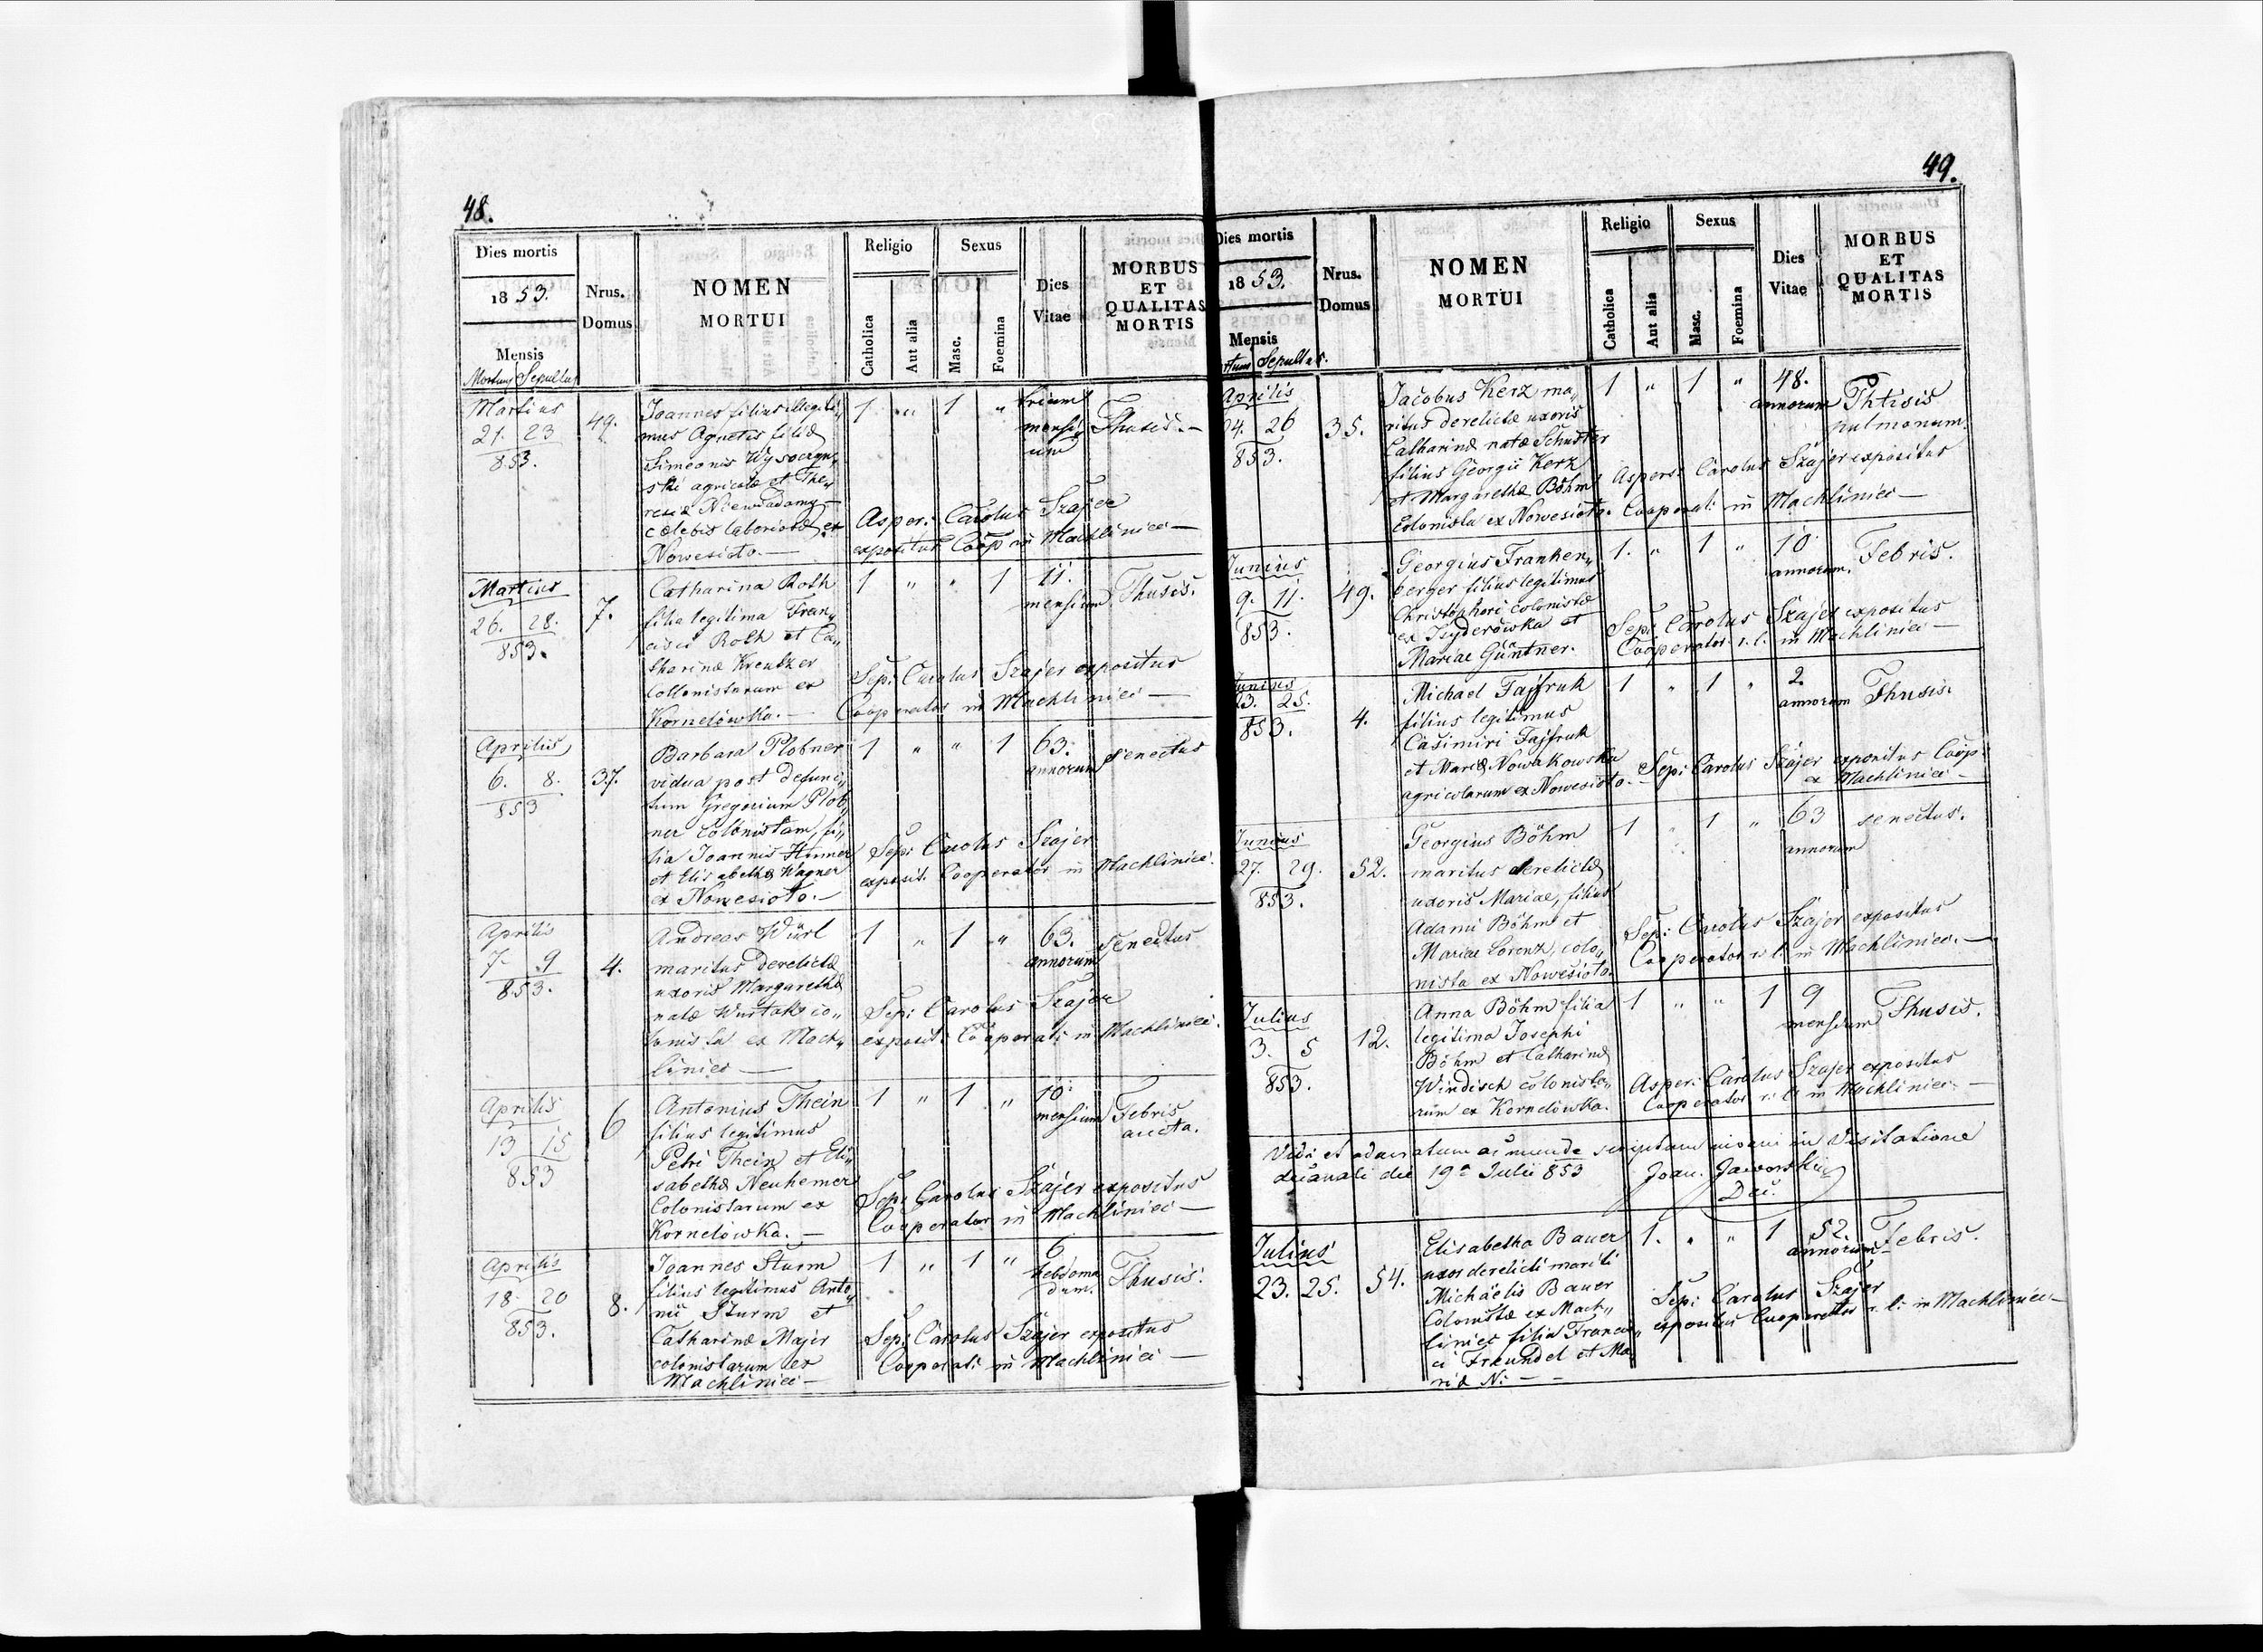 48.
Dies mortis
18 53.
Mensis
Mortuus Sepultus
Nrus.
Domus
NOMEN
MORTUI
Religio
Catholica
Aut alia
Sexus
Masc.
Foemina
Dies
Vitae
MORBUS
ET
QUALITAS
MORTIS
Martius
21. 23
853.
49.
Joannes filius illegiti„
mus Agnetis filiæ
Simeonis Wysoczyn„
ski agricolæ et The„
resiæ Niewiadamy
cælebis laboriosæ ex
Nowesioto.—
1 „ 1 „
trium
mensi„
um
Thusis.—
Asper: Carolus Szajer
expositus Coop in Machliniec—
Martius
26. 28.
853.
7.
Catharina Roth
filia legitima Fran„
cisci Roth et Ca„
tharinæ Kreutzer
Collonistarum ex
Kornelówka.—
1 „ „ 1
11.
mensium
Thusis.
Sep: Carolus Szajer expositus
Cooperator in Machliniec—
Aprilis
6. 8.
853
37.
Barbara Plobner
vidua post defunc„
tum Gregorium Plob„
ner Colonistam, fi„
lia Joannis Hinner
et Elisabethæ Wagner
ex Nowesioto.—
1 „ „ 1
63.
annorum
senectus
Sep: Carolus Szajer
exposit. Cooperator in Machliniec.
Aprilis
7 9
853.
4.
Andreas Würl
maritus derelictæ
uxoris Margarethæ
natæ Wurtak co„
lonista ex Mach„
liniec—
1 „ 1 „
63.
annorum
senectus
Sep: Carolus Szajer
exposit: Cooperat: in Machliniec.
Aprilis
13 15
853
6
Antonius Thein
filius legitimus
Petri Thein et Eli„
sabethæ Neuhemer
Colonistarum ex
Kornelówka.—
1 „ 1 „
10.
mensium
Febris
Sep: Carolus Szajer expositus
Cooperator in Machliniec—
Aprilis
18. 20
853.
8.
Joannes Sturm
filius legitimus Anto„
nii Sturm et
Catharinæ Majer
colonistarum ex
Machliniec—
1 „ 1 „
6
hebdoma
dum.
Thusis.
Sep: Carolus Szajer expositus
Cooperat: in Machliniec—
49.
Dies mortis
18 53.
Mensis
Sepultus.
Nrus.
Domus
NOMEN
MORTUI
Religio
Catholica
Aut alia
Sexus
Masc.
Foemina
Dies
Vitae
MORBUS
ET
QUALITAS
MORTIS
Aprilis
24. 26
853.
35.
Jacobus Kerz ma„
ritus derelictæ uxoris
Catharinæ natæ Schuster
filius Georgii Kerz
et Margarethæ Böhm
Colonista ex Nowesioto.
1 „ 1 „
48.
annorum
Phtisis
pulmonum.
Aspers: Carolus Szajer expositus
Cooperat: in Machliniec—
Junius
9. 11.
853.
49.
Georgius Franken„
berger filius legitimus
Christophori colonistæ
ex Izyderówka et
Mariae Güntner.
1. „ 1 „
10
annorum.
Febris.
Sep: Carolus Szajer expositus
Cooperator r. l: in Machliniec—
Junius
23. 25.
853.
4.
Michael Fajfruk
filius legitimus
Casimiri Fajfruk
et Mariæ Nowakowska
agricolarum ex Nowesioto.—
1 „ 1 „
2
annorum
Thusis.
Sep: Carolus Szajer expositus Coop:
ex Machliniec—
Junius
27. 29.
853.
52.
Georgius Böhm
maritus derelictæ
uxoris Mariae, filius
Adami Böhm et
Mariae Lorenz, colo„
nista ex Nowesioto.
1 „ 1 „
63
annorum
senectus.
Sep: Carolus Szajer expositus
Cooperator r. l: in Machliniec.—
Julius
3. 5
853.
12.
Anna Böhm filia
legitima Josephi
Böhm et Catharinæ
Windisch colonista„
rum ex Kornelówka.
1 „ „ 1
9
mensium
Thusis.
Asper: Carolus Szajer expositus
Cooperator r: l: in Machliniec.—
Vidi et ac munde scriptam in visitatione
decanali die 19a Julii 853 Joan. Jaworski
Dec.
Julius
23. 25.
54.
Elisabetha Bauer
uxor derelicti mariti
Michaëlis Bauer
Colonistæ ex Mach„
liniec filia Francis„
ci Freundel et Ma
riæ N: —
1. „ „ 1
52.
annorum
Febris.
Sep: Carolus Szajer
expositus Cooperator r. l: in Machliniec—